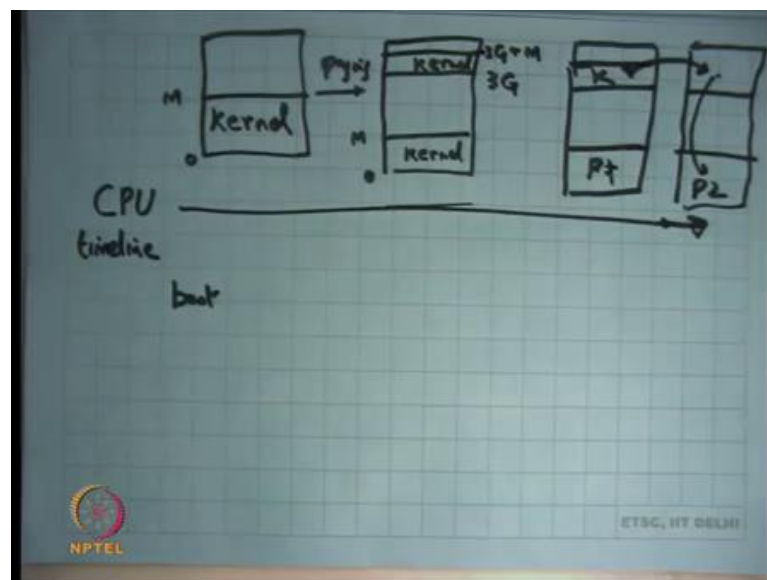 M
Kernel
0
paging
Kernel
3G+M
3G
M
Kernel
0
K
P1
P2
CPU
timeline
boot
NPTEL
ETSC, IIT DELHI